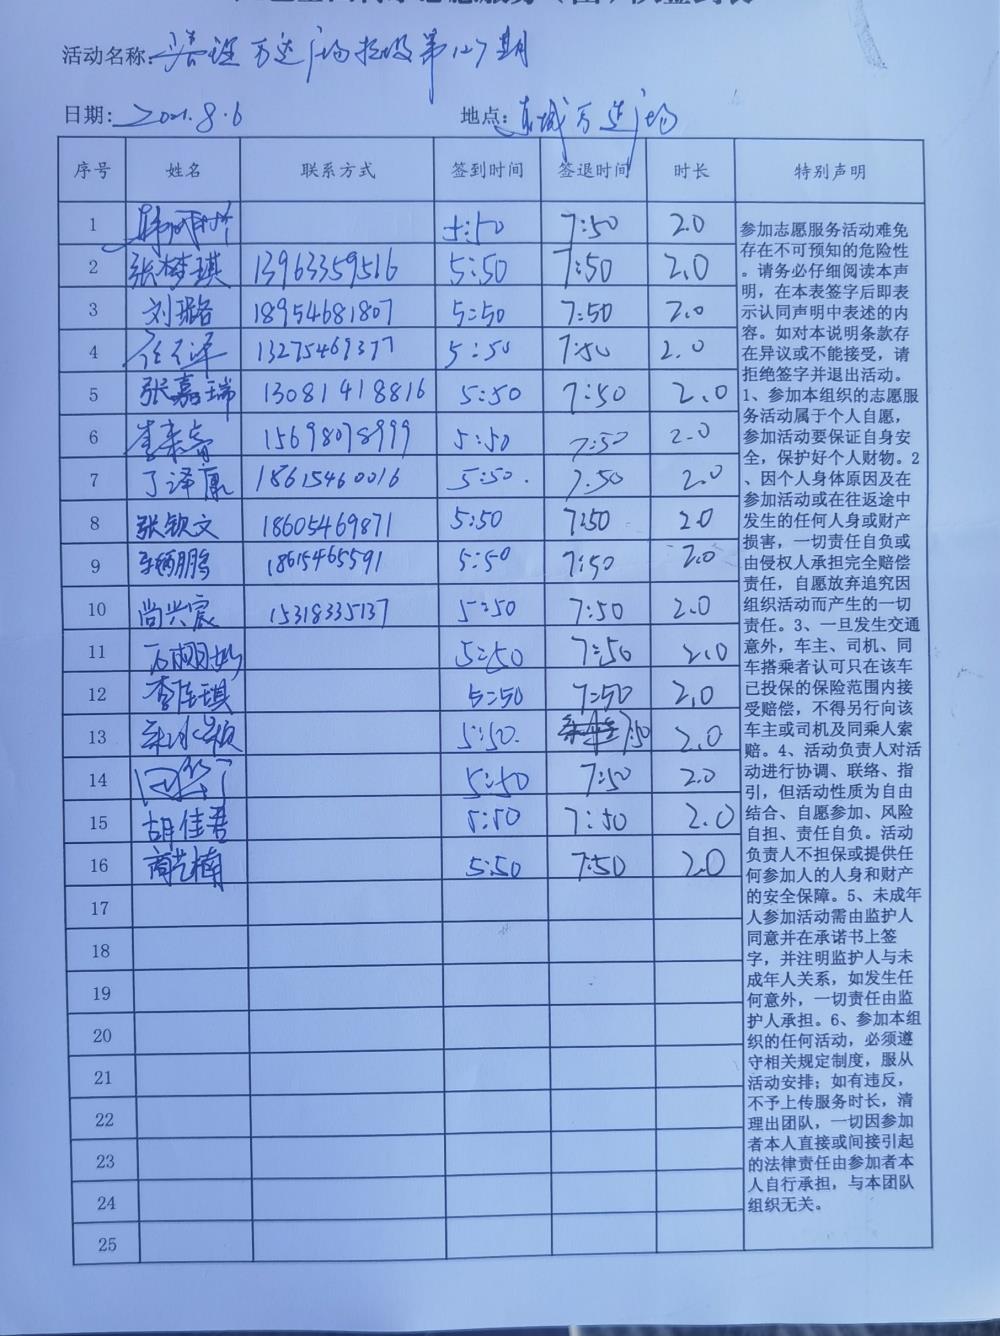 活动名称: 万达广场 第127期
日期: 2021.8.6 地点: 东城万达广场
序号 姓名 联系方式 签到时间 签退时间 时长 特别声明
1 5:50 7:50 2.0
2 张梦琪 13963359516 5:50 7:50 2.0
3 刘璐 18954681807 5:50 7:50 2.0
4 13275469377 5:50 7:50 2.0
5 张嘉瑞 13081418816 5:50 7:50 2.0
6 15698078999 5:50 7:50 2.0
7 丁泽康 18615460016 5:50 7:50 2.0
8 张钦文 18605469871 5:50 7:50 2.0
9 18615465591 5:50 7:50 2.0
10 尚兴宸 15318335137 5:50 7:50 2.0
11 5:50 7:50 2.0
12 5:50 7:50 2.0
13 5:50. 7:50 2.0
14 5:50 7:50 2.0
15 胡佳吾 5:50 7:50 2.0
16 商艺楠 5:50 7:50 2.0
17
18
19
20
21
22
23
24
25
参加志愿服务活动难免
存在不可预知的危险性
。请务必仔细阅读本声
明，在本表签字后即表
示认同声明中表述的内
容。如对本说明条款存
在异议或不能接受，请
拒绝签字并退出活动。
1、参加本组织的志愿服
务活动属于个人自愿，
参加活动要保证自身安
全，保护好个人财物。2
、因个人身体原因及在
参加活动或在往返途中
发生的任何人身或财产
损害，一切责任自负或
由侵权人承担完全赔偿
责任，自愿放弃追究因
组织活动而产生的一切
责任。3、一旦发生交通
意外，车主、司机、同
车搭乘者认可只在该车
已投保的保险范围内接
受赔偿，不得另行向该
车主或司机及同乘人索
赔。4、活动负责人对活
动进行协调、联络、指
引，但活动性质为自由
结合、自愿参加、风险
自担、责任自负。活动
负责人不担保或提供任
何参加人的人身和财产
的安全保障。5、未成年
人参加活动需由监护人
同意并在承诺书上签
字，并注明监护人与未
成年人关系，如发生任
何意外，一切责任由监
护人承担。6、参加本组
织的任何活动，必须遵
守相关规定制度，服从
活动安排；如有违反，
不予上传服务时长，清
理出团队，一切因参加
者本人直接或间接引起
的法律责任由参加者本
人自行承担，与本团队
组织无关。